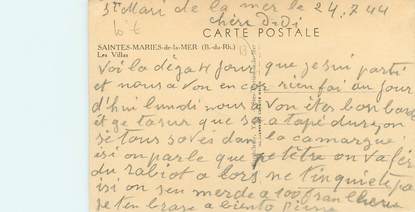 Ste Mari de la mer le 24.7.44
chéri Didi
CARTE POSTALE
SAINTES-MARIES-de-la-MER (B.-du-Rh.)
Les Villas
Voi la déga 4 jour que je sui parti
et nous a von en core rien fai au jour
d'hui lundi nous a von éter bon bardé
et ge tasur que sa a tapé du
sé tous sovés dan la camargue
isi on parle que petètre on va fér
du rabiot a lors ne tinquiète pa
isi on seu merde a 100 fran l'heure
je ten brase a biento